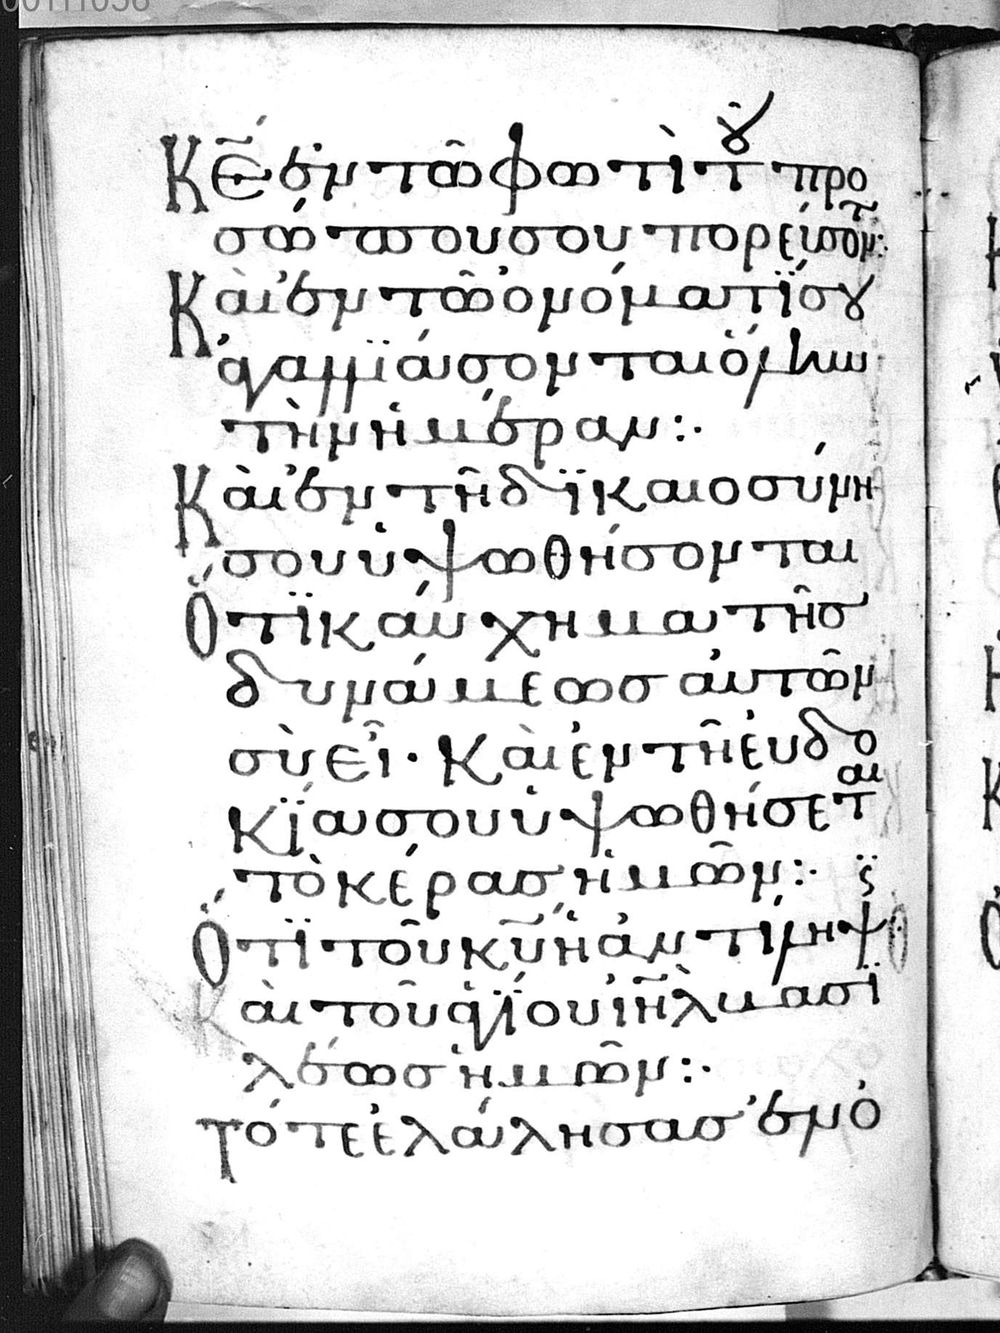 00111058
Κε̄ ἐν τῶ φωτὶ τοῦ προ
σώπου σου πορεύσοντ:
Καὶ ἐν τῶ ὀνόματί σου
ἀγαλλιάσονται ὅλην
τὴν ἡμέραν:·
Καὶ ἐν τῆ δϊκαιοσύνη
σου ὑψωθήσονται
Ὅτϊ καύχημα τῆσ
δυνάμεωσ αὐτῶν
σὺ εἶ· Καὶ ἐν τῆ εὐδο
κΐα σου ὑψωθήσεται
τὸ κέρασ ἡμῶν:·
Ὅτϊ τοῦ κῡ ἡ ἀντίληψϊς
Καὶ τοῦ ἁγΐου ιη̄λ βασϊ
λέωσ ἡμῶν:·
Τότε ἐλάλησασ ἐν ὁ